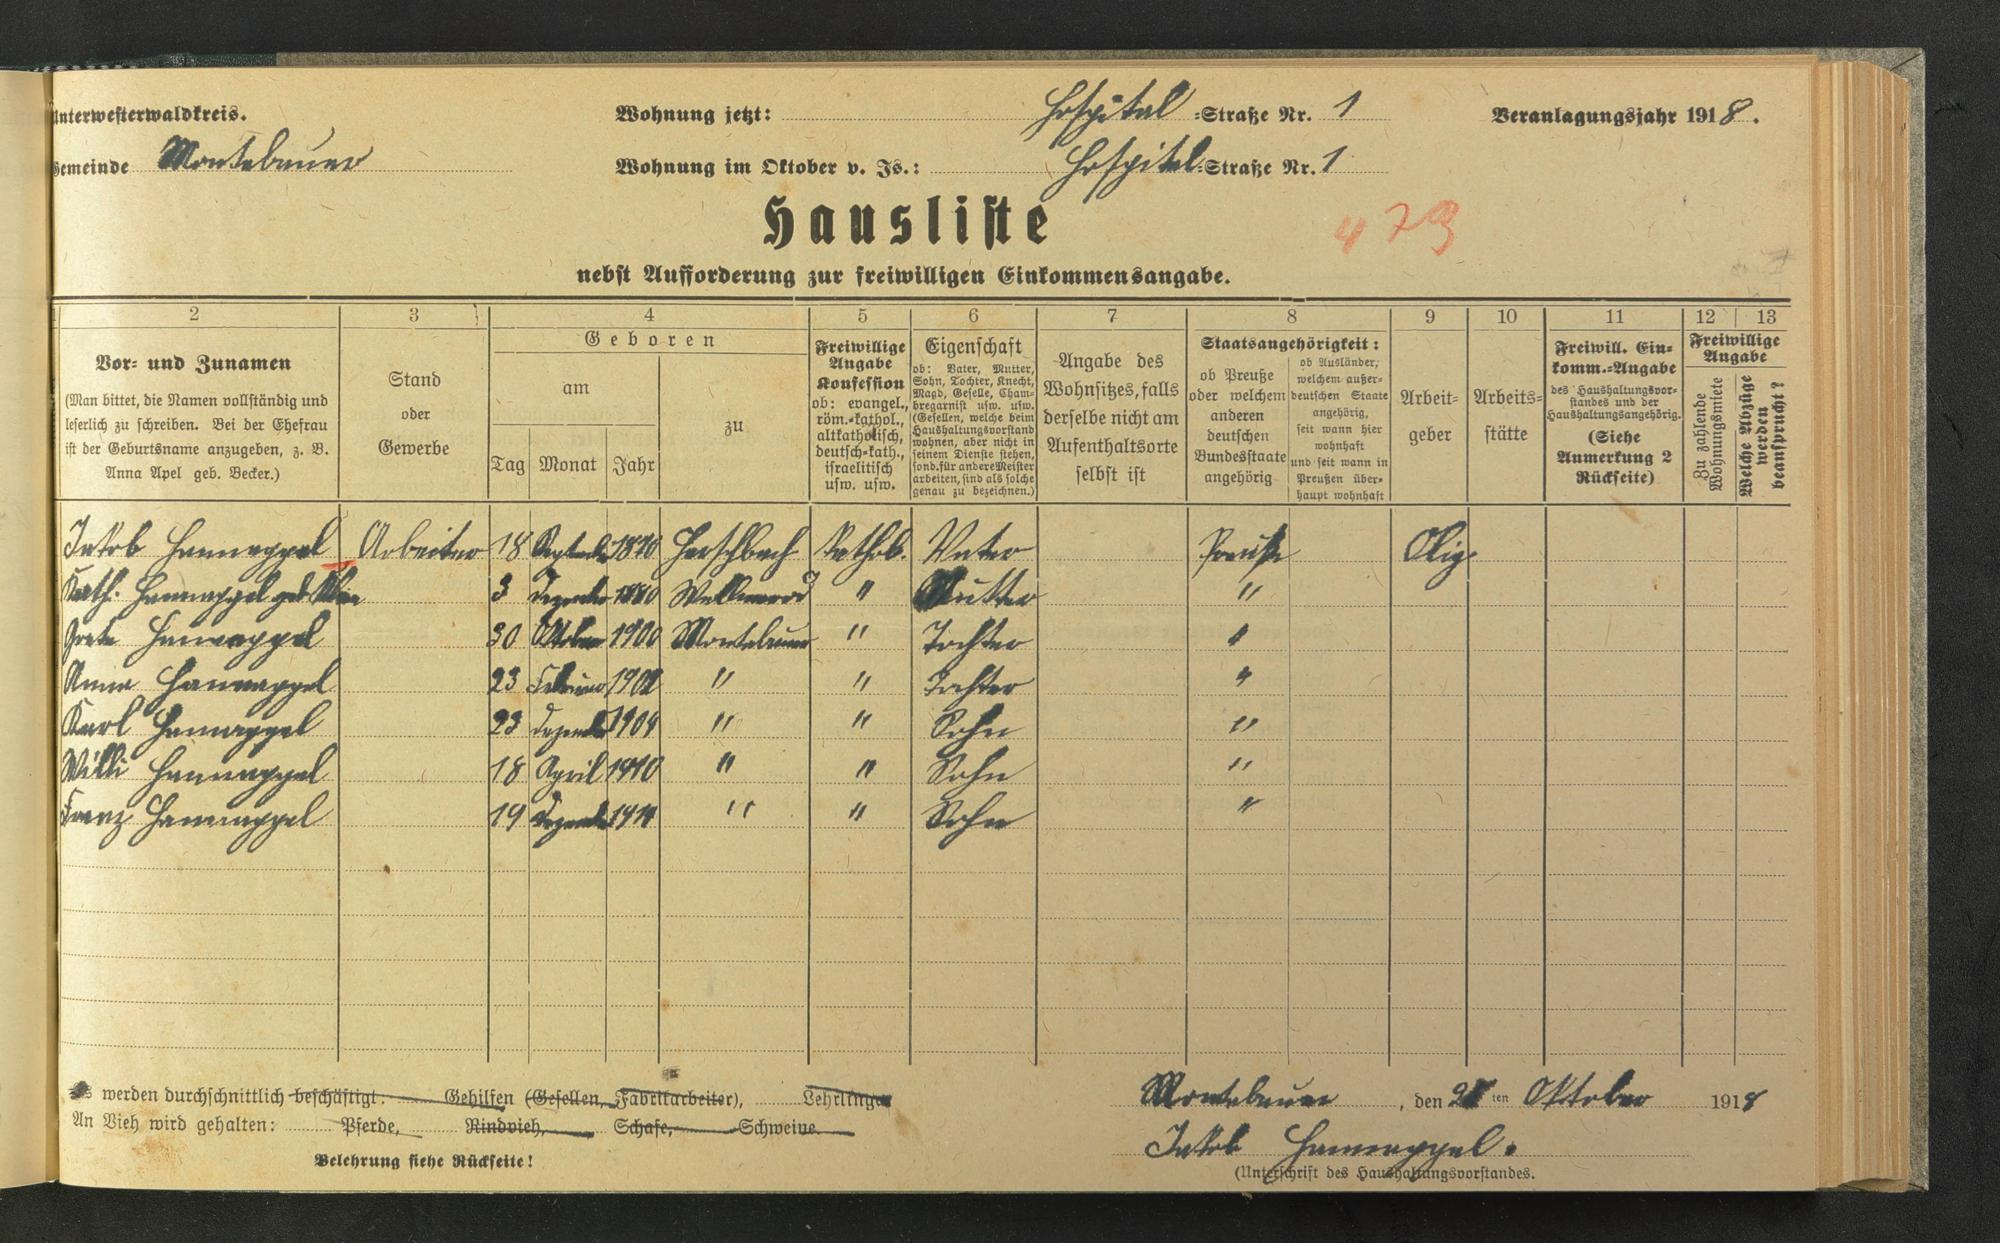 Unterwesterwaldkreis.
Wohnung jetzt: Hospital -Straße Nr. 1
Veranlagungsjahr 1918.
Gemeinde Montabaur
Wohnung im Oktober v. Js.: Hospital-Straße Nr. 1
Hausliste
473
nebst Aufforderung zur freiwilligen Einkommensangabe.
2 3 4 5 6 7 8 9 10 11 12 13
Vor- und Zunamen
(Man bittet, die Namen vollständig und
leserlich zu schreiben. Bei der Ehefrau
ist der Geburtsname anzugeben, z. B.
Anna Apel geb. Becker.)
Stand
oder
Gewerbe
Geboren
am
Tag Monat Jahr
zu
Freiwillige
Angabe
Konfession
ob: evangel.,
röm.-kathol.,
altkatholisch,
deutsch-kath.,
israelitisch
usw. usw.
Eigenschaft
ob: Vater, Mutter,
Sohn, Tochter, Knecht,
Magd, Geselle, Cham-
bregarnist usw. usw.
(Gesellen, welche beim
Haushaltungsvorstand
wohnen, aber nicht in
seinem Dienste stehen,
sond. für andere Meister
arbeiten, sind als solche
genau zu bezeichnen.)
Angabe des
Wohnsitzes, falls
derselbe nicht am
Aufenthaltsorte
selbst ist
Staatsangehörigkeit:
ob Preuße
oder welchem
anderen
deutschen
Bundesstaate
angehörig
ob Ausländer,
welchem außer-
deutschen Staate
angehörig,
seit wann hier
wohnhaft
und seit wann in
Preußen über-
haupt wohnhaft
Arbeit-
geber
Arbeits-
stätte
Freiwill. Ein-
komm.-Angabe
des Haushaltungsvor-
standes und der
Haushaltungsangehörig.
(Siehe
Anmerkung 2
Rückseite)
Freiwillige
Angabe
Zu zahlende
Wohnungsmiete
Welche Abzüge
werden
beansprucht?
Jakob Hannappel Arbeiter 18 September 1870 Herschbach Kathol. Vater Preuße Olig
Kath. Hannappel geb. 3 Dezember 1880 Wallmerod " Mutter "
Grete Hannappel 30 Oktober 1900 Montabaur " Tochter "
Anna Hannappel 23 Februar 1902 " " Tochter "
Karl Hannappel 23 Dezember 1904 " " Sohn "
Willi Hannappel 18 April 1910 " " Sohn "
Franz Hannappel 19 Dezember 1914 " " Sohn "
Es werden durchschnittlich beschäftigt: Gehilfen (Gesellen, Fabrikarbeiter), Lehrlinge
An Vieh wird gehalten: Pferde, Rindvieh, Schafe, Schweine.
Belehrung siehe Rückseite!
Montabaur, den ten Oktober 1918
Jakob Hannappel.
(Unterschrift des Haushaltungsvorstandes.